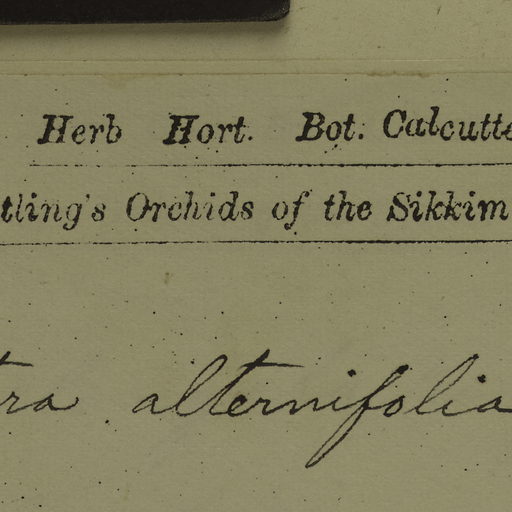 Herb Hort. Bot. Calcutte
tling's Orchids of the Sikkim
tra alternifolia